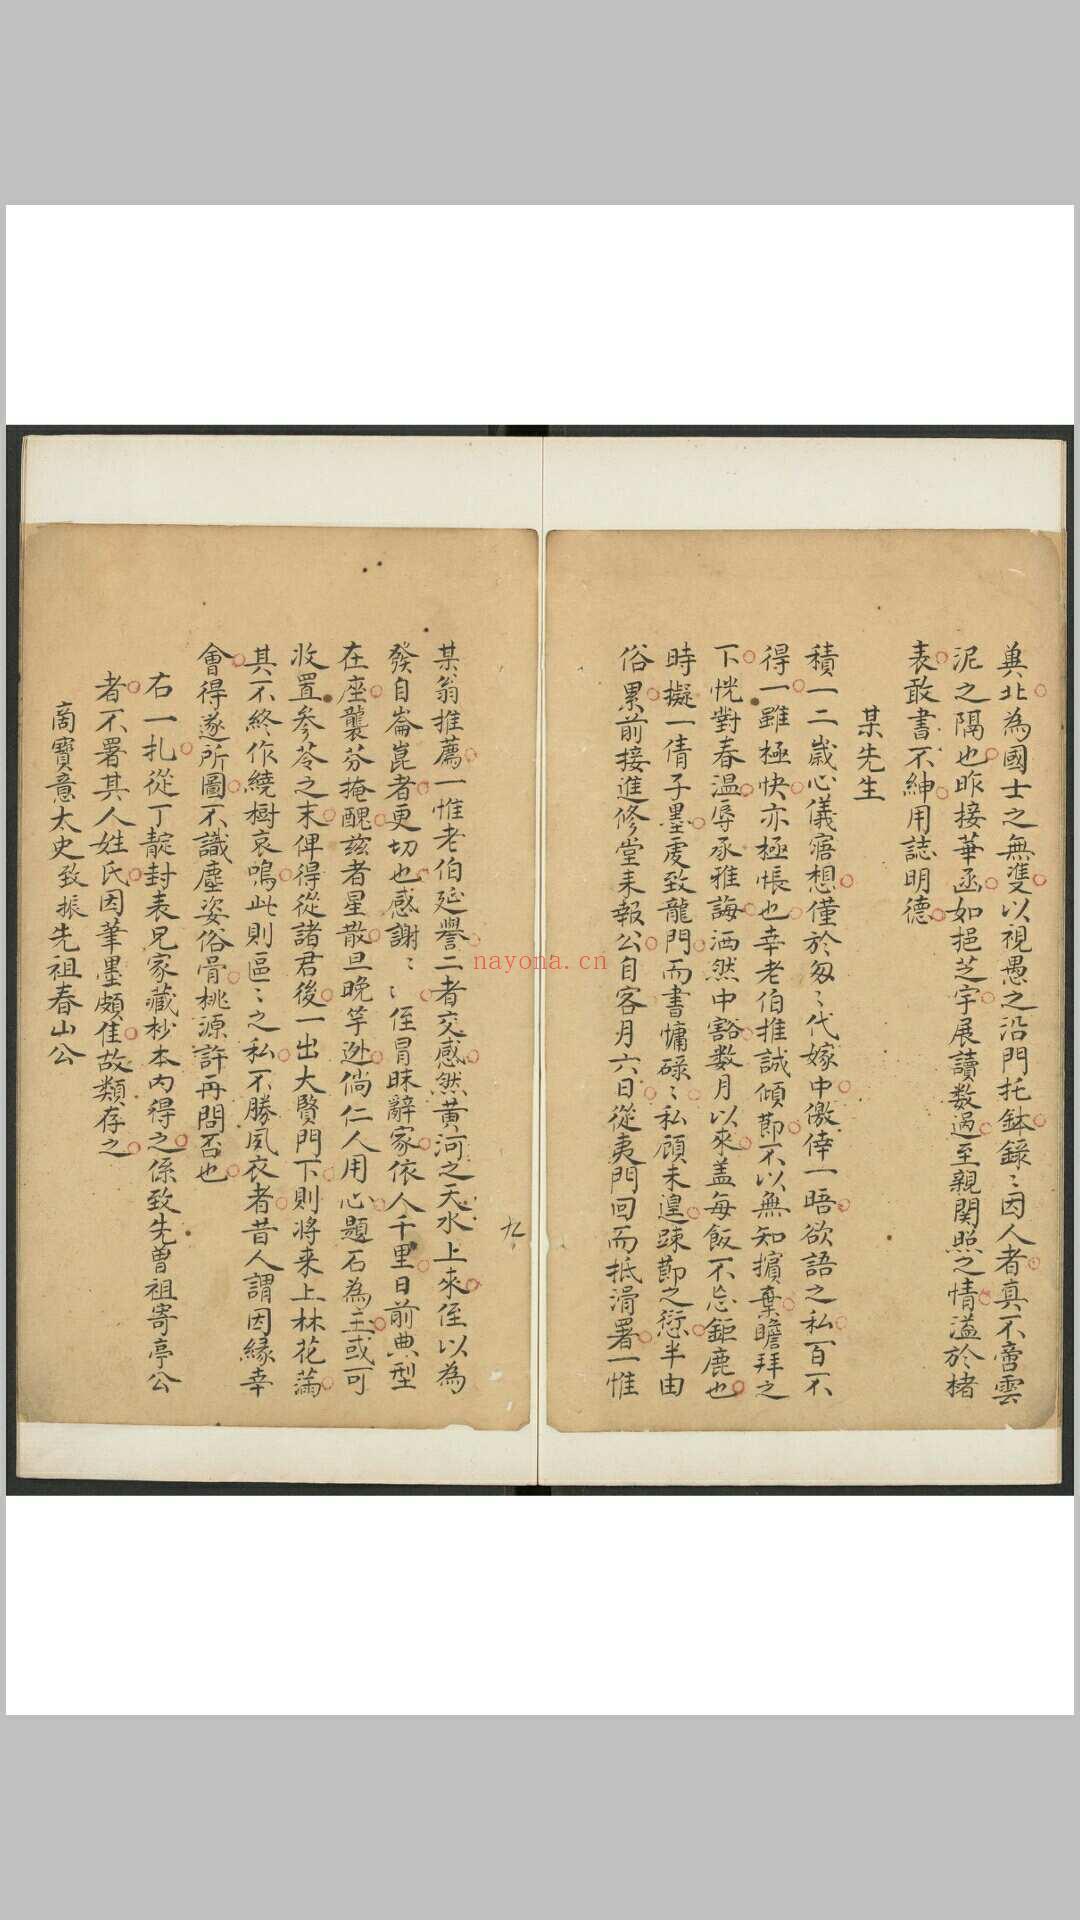 冀北為國士之無雙以視愚之沿門托鉢錄〻因人者真不啻雲
泥之隔也昨接華函如挹芝宇展讀数過至親関照之情溢於楮
表敢書不紳用誌明德
某先生
積一二歲心儀寤想僅於匆〻代嫁中徼倖一晤欲語之私百不
得一雖極快亦極悵也幸老伯推誠傾節不以無知擯棄瞻拜之
下恍對春温辱承雅誨洒然中豁数月以來盖每飯不忘鉅鹿也
時擬一倩子墨虔致龍門而書慵碌〻私顧未遑踈節之愆半由
俗累前接進修堂来報公自客月六日從夷門回而抵滑署一惟
某翁推薦一惟老伯延譽二者交感然黄河之天水上來侄以為
發自崙崑者更切也感謝〻〻侄冒昧辭家依人千里日前典型
在座襲芬掩醜兹者星散旦晚竿逊倘仁人用心題石為主或可
收置参苓之末俾得從諸君後一出大賢門下則将来上林花滿
其不終作繞樹哀鳴此則區〻之私不勝夙衣者昔人謂因緣幸
會得遂所圖不識塵姿俗骨桃源許再問否也
右一扎從丁靛封表兄家藏杪本内得之係致先曾祖寄亭公
者不署其人姓氏因筆墨頗佳故類存之
啇寶意太史致振先祖春山公
九
nayona.cn